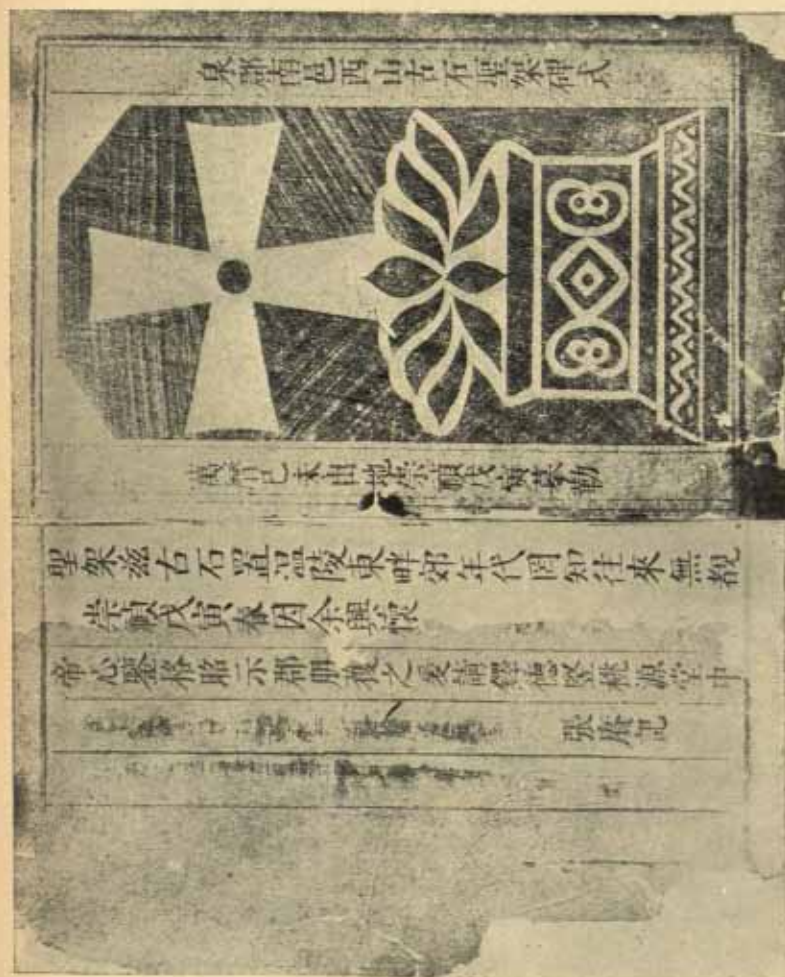 泉郡南邑西山古石聖架碑式
萬曆己未出地崇禎戊寅摹勒
聖架兹古石置溫陵東畔郊年代罔知往來無覩
崇禎戊寅春因余興懷
帝心鑒格昭示郡朋獲之爰請鐸德竪桃源堂中
張賡記